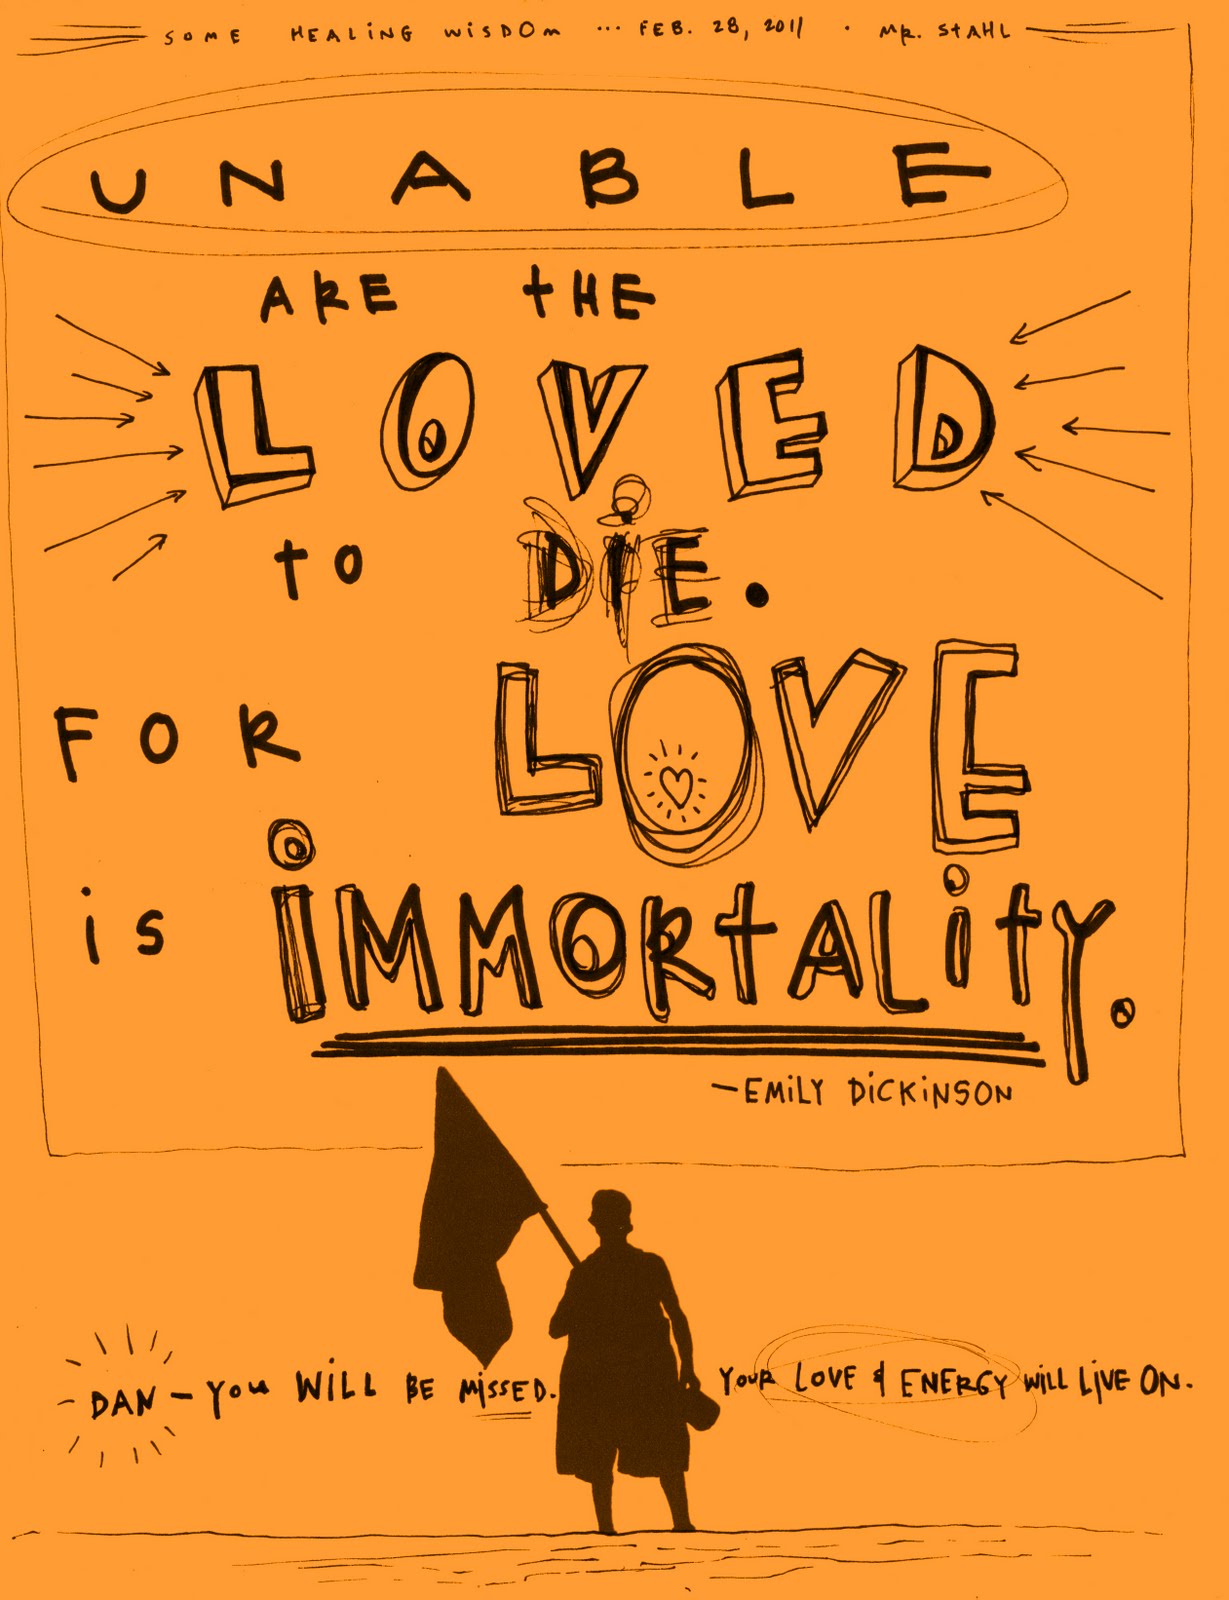 SOME HEALING WISDOM ... FEB. 28, 2011 · MR. STAHL
UNABLE
ARE THE
LOVED
to DIE.
FOR LOVE
is IMMORTALITY.
—EMILY DICKINSON
DAN — YOU WILL BE MISSED. YOUR LOVE & ENERGY WILL LIVE ON.